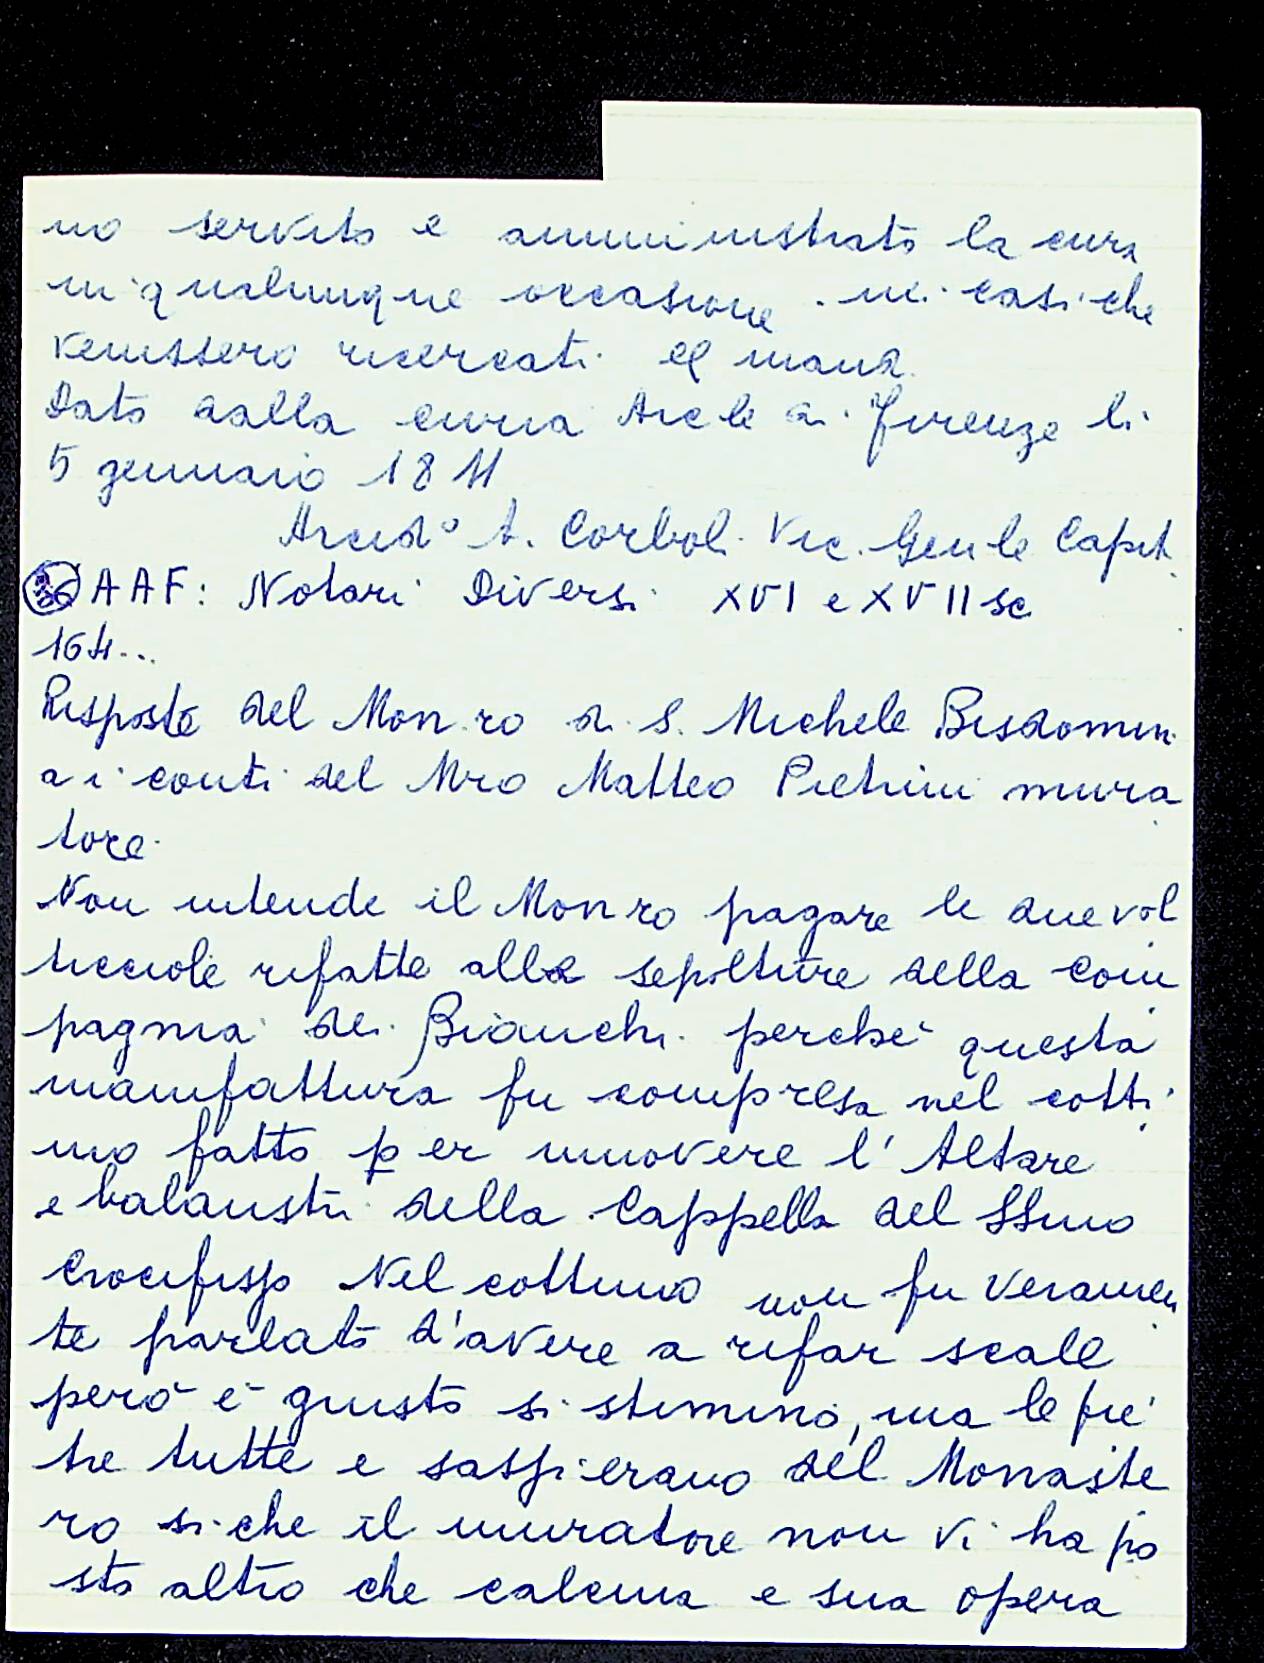 no servito e amministrato la cura
in qualunque occasione. ne' casi che
venissero ricercati. ed mand.
Dato dalla curia Arcle di Firenze li
5 gennaio 1811
Arcid° A. Corboli Vic. Genle Capit.
AAF: Notari Diversi XVI e XVII sc
164...
Risposte del Mon.ro di S. Michele Bisdomin
a i conti del Mro Matteo Pietrini mura
tore.
Non intende il Monro pagare le due vol
ticciole rifatte alle sepolture della com
pagnia de' Bianchi. perchè questa
manifattura fu compresa nel cotti
mo fatto per muovere l'Altare
e balaustri della Cappella del SSmo
Crocifisso Nel cottimo non fu veramen
te parlato d'avere a rifar scale
però è giusto si stimino, ma le pie
tre tutte e saspierano del Monaste
ro si che il muratore non vi ha po
sto altro che calcina e sua opera